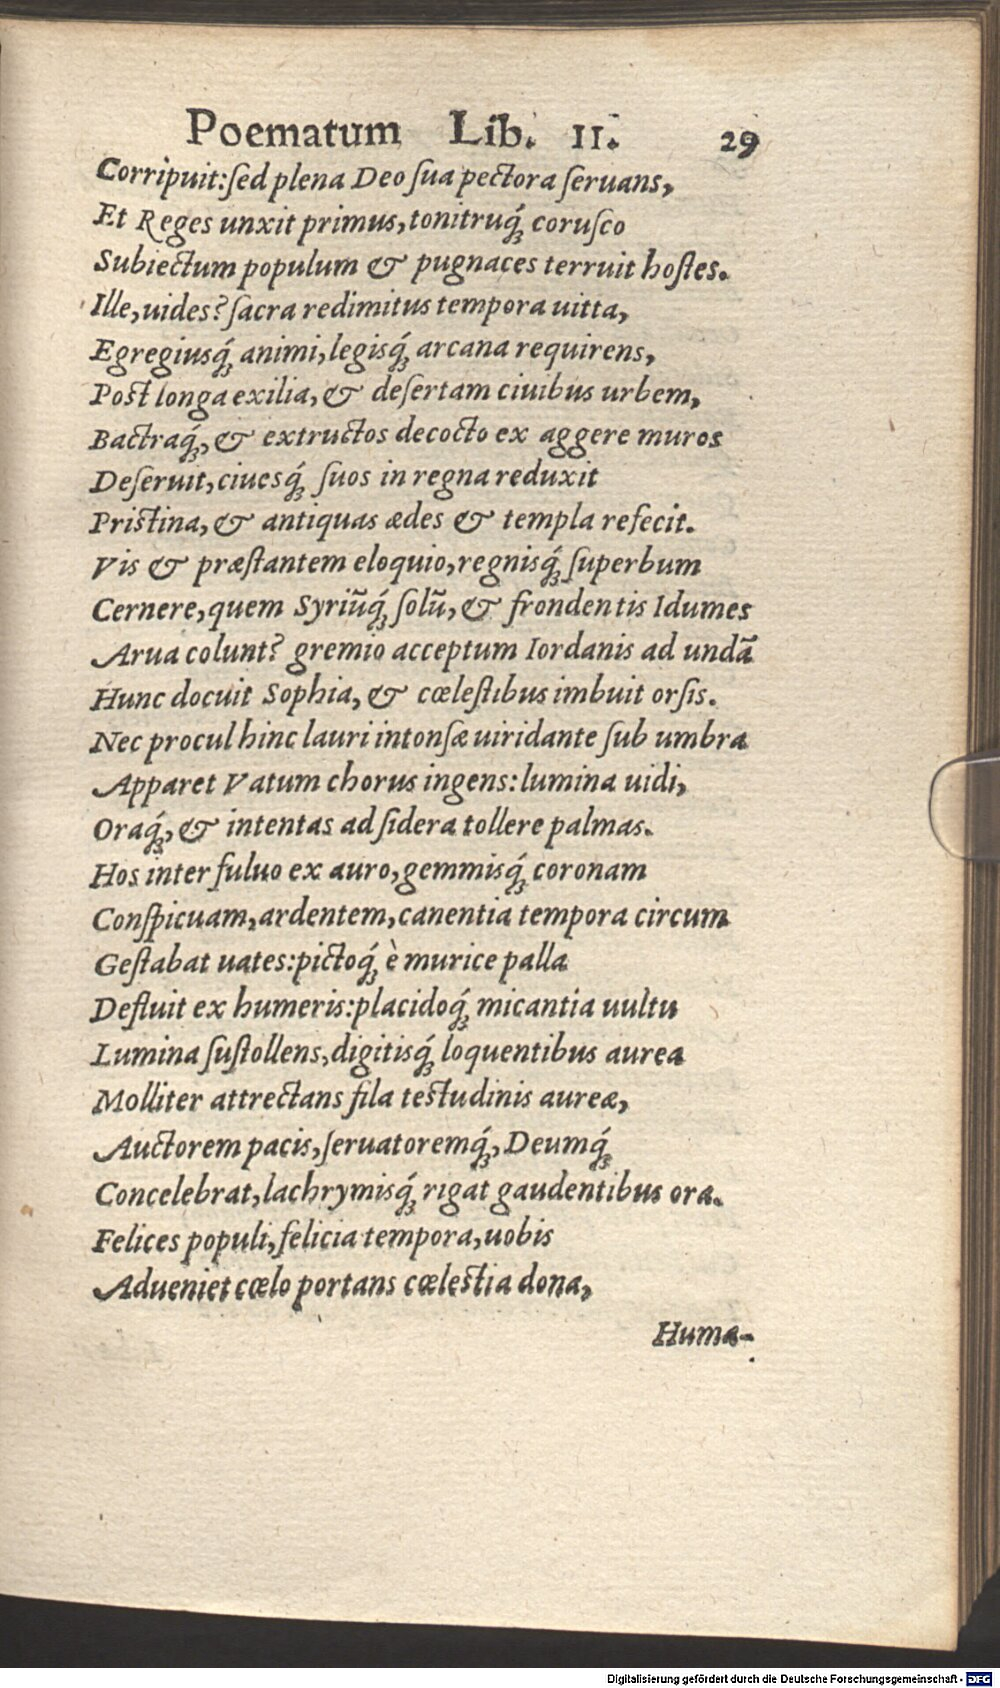 Poematum Lib. II. 29
Corripuit:ſed plena Deo ſua pectora ſeruans,
Et Reges unxit primus,tonitruq́ꝫ coruſco
Subiectum populum & pugnaces terruit hoſtes.
Ille,uides?ſacra redimitus tempora uitta,
Egregiusq́ꝫ animi,legisq́ꝫ arcana requirens,
Post longa exilia,& deſertam ciuibus urbem,
Bactraq́ꝫ,& extructos decocto ex aggere muros
Deſeruit,ciuesq́ꝫ ſuos in regna reduxit
Pristina,& antiquas ædes & templa refecit.
Vis & præſtantem eloquio,regnisq́ꝫ ſuperbum
Cernere,quem Syriũq́ꝫ ſolũ,& frondentis Idumes
Arua colunt? gremio acceptum Iordanis ad undã
Hunc docuit Sophia,& cœleſtibus imbuit orſis.
Nec procul hinc lauri intonſæ uiridante ſub umbra
Apparet Vatum chorus ingens:lumina uidi,
Oraq́ꝫ,& intentas ad ſidera tollere palmas.
Hos inter fuluo ex auro,gemmisq́ꝫ coronam
Conſpicuam,ardentem,canentia tempora circum
Geſtabat uates:pictoq́ꝫ è murice palla
Defluit ex humeris:placidoq́ꝫ micantia uultu
Lumina ſuſtollens,digitisq́ꝫ loquentibus aurea
Molliter attrectans fila testudinis aureæ,
Auctorem pacis,ſeruatoremq́ꝫ,Deumq́ꝫ
Concelebrat,lachrymisq́ꝫ rigat gaudentibus ora.
Felices populi,felicia tempora,uobis
Adueniet cœlo portans cœlestia dona,
Huma-
Digitalisierung gefördert durch die Deutsche Forschungsgemeinschaft - DFG